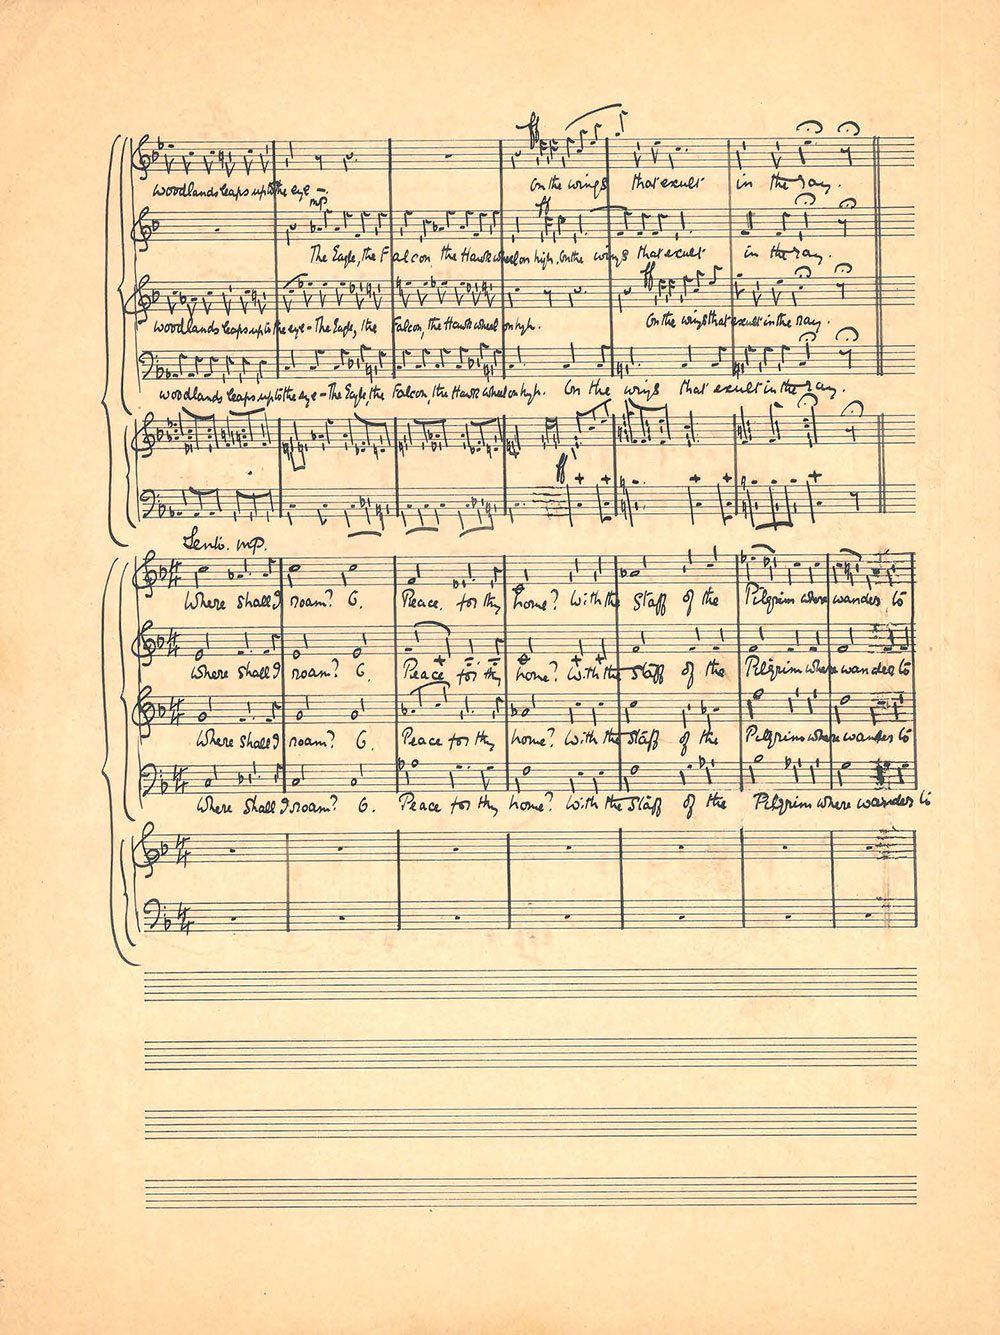 ff
woodlands leaps up to the eye –
mp ff
The Eagle, the Falcon the Hawk wheel on high. On the wings that exult in the ray.
On the wings that exult in the ray.
ff
woodlands leaps up to the eye – The Eagle, the Falcon, the Hawk wheel on high. On the wings that exult in the ray.
woodlands leaps up to the eye – The Eagle, the Falcon, the Hawk wheel on high. On the wings that exult in the ray.
ff
Lento. mp.
Where shall I roam? O. Peace. for thy home? With the staff of the Pilgrim where wander to
Where shall I roam? O. Peace for thy home? With the staff of the Pilgrim where wander to
Where shall I roam? O. Peace for thy home? With the staff of the Pilgrim where wander to
Where shall I roam? O. Peace for thy home? With the staff of the Pilgrim where wander to